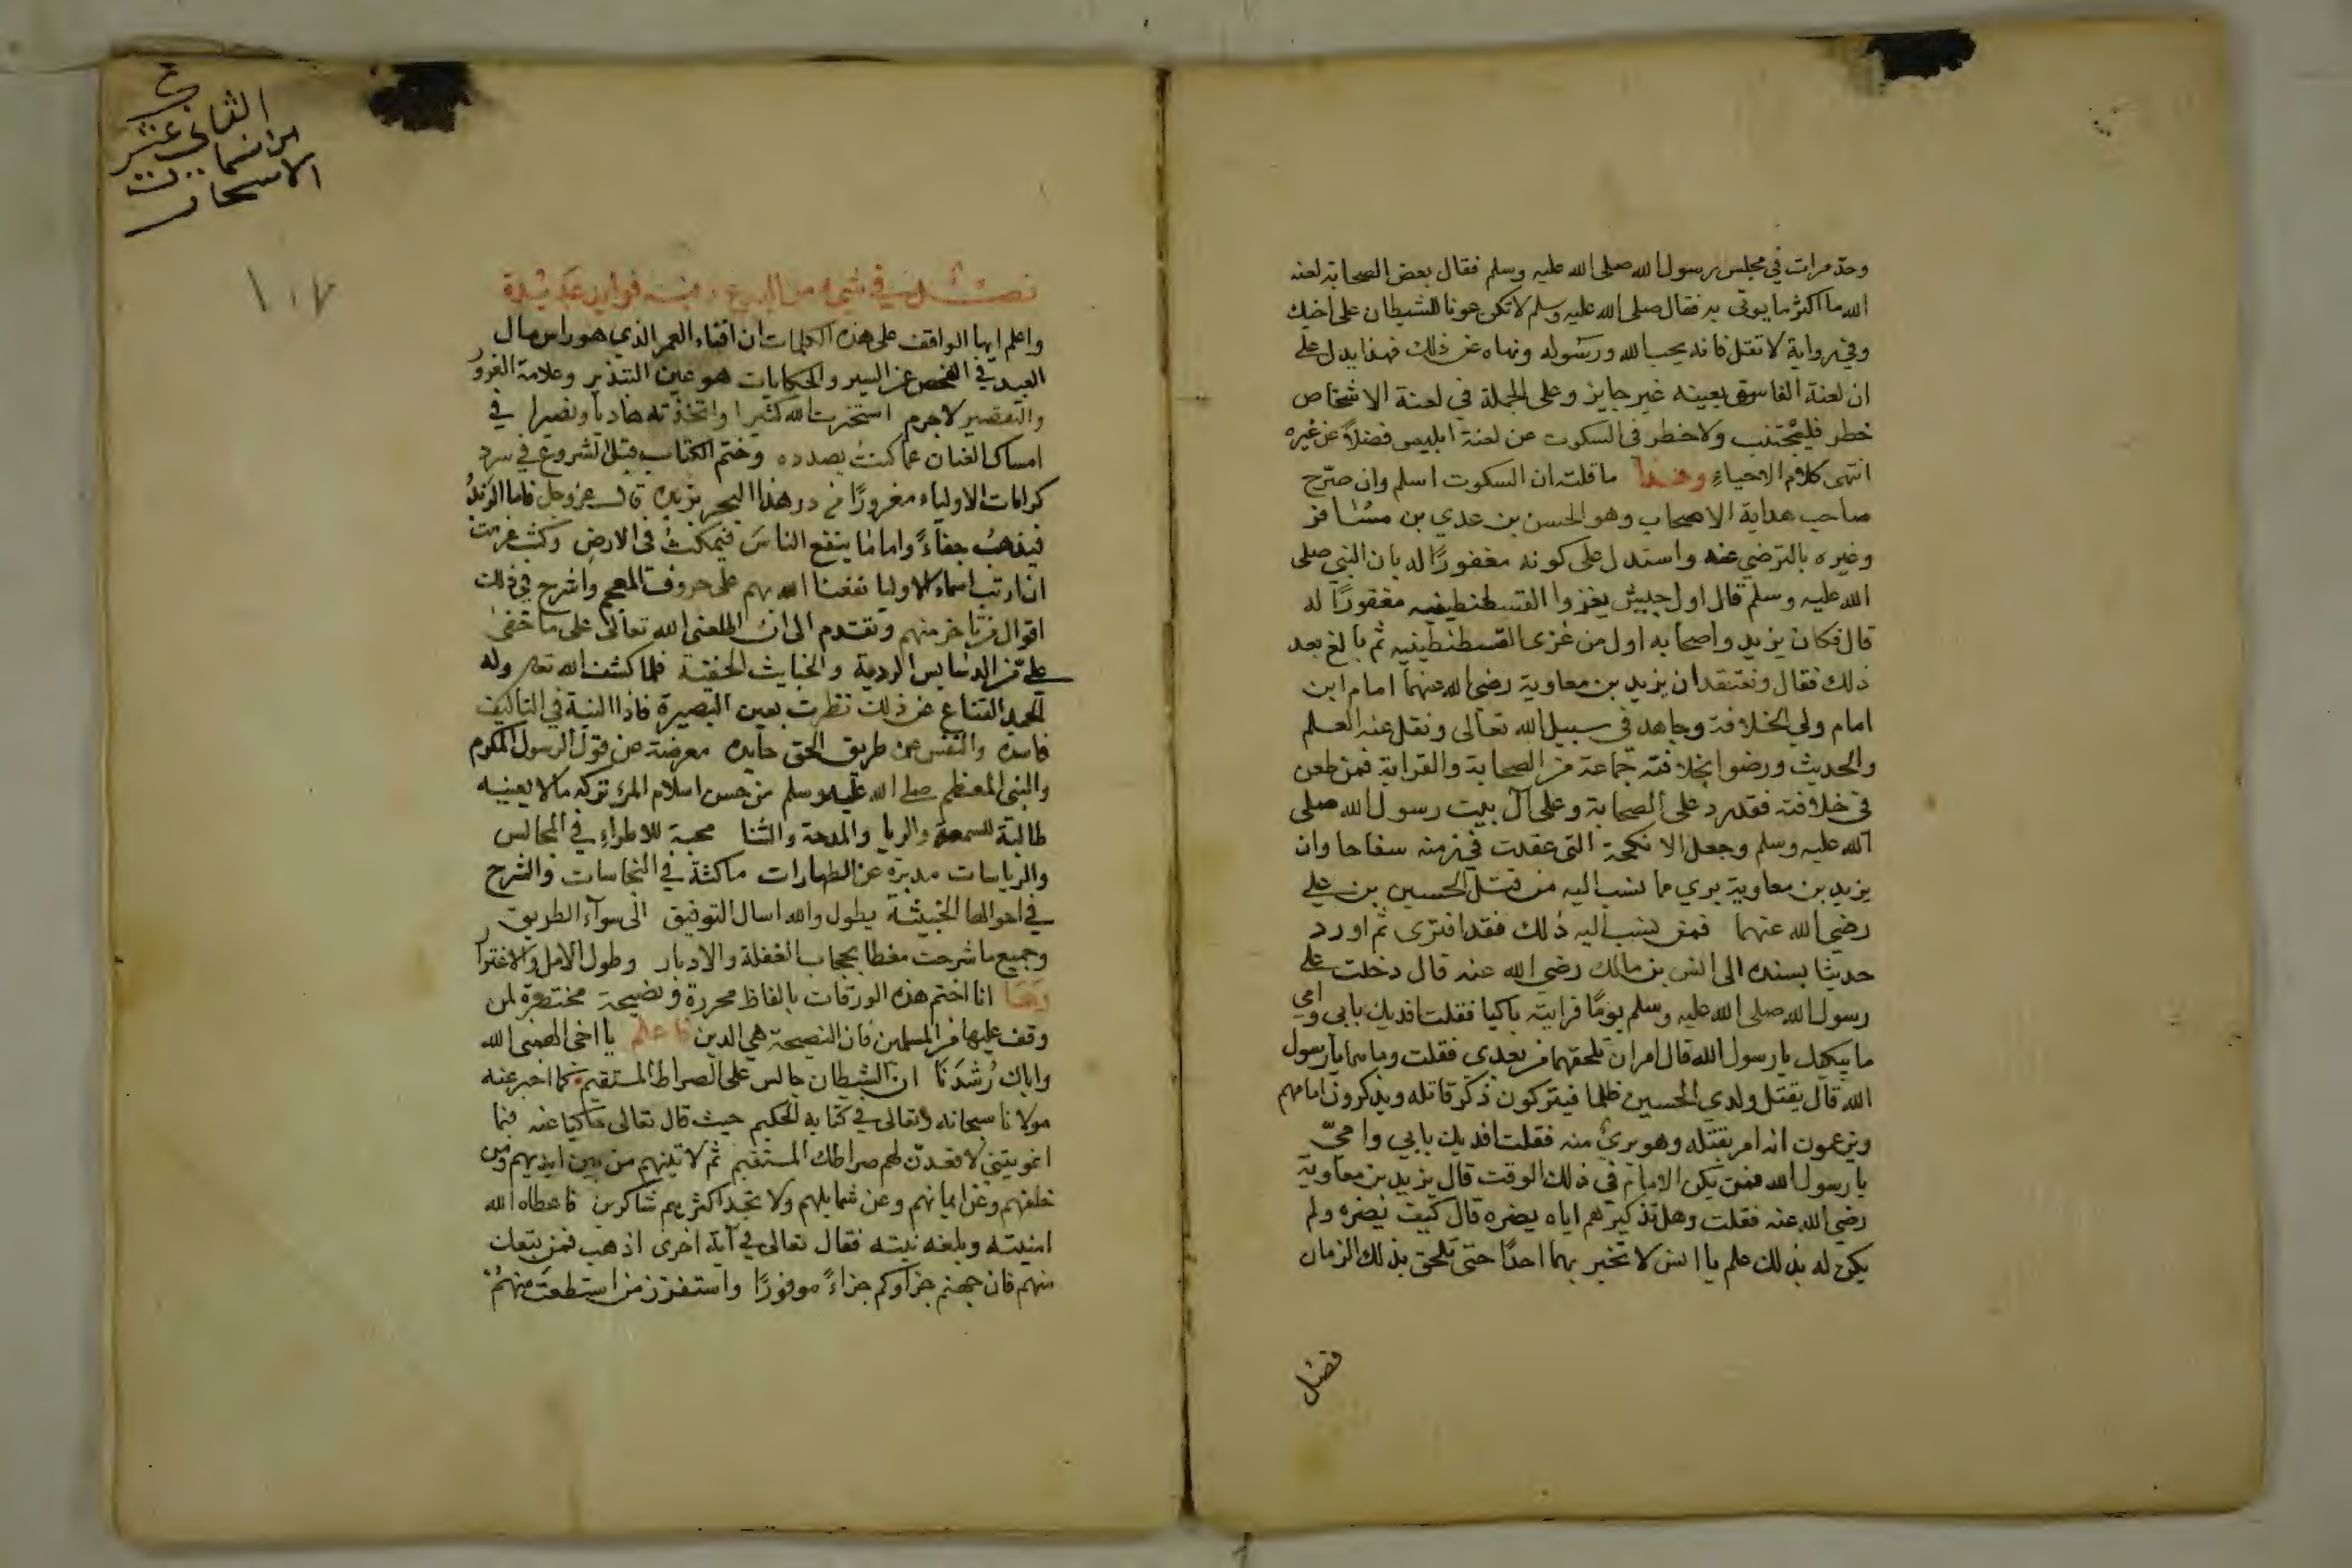 وحد مرات في مجلس رسول الله صلى الله عليه وسلم فقال بعض الصحابة لعنه
الله ما اكثر ما يوتى به فقال صلى الله عليه وسلم لا تكن عونا للشيطان على اخيك
وفي رواية لا تقتل فانه يحب الله ورسوله ونهاه عن ذلك فهذا يدل على
ان لعنة الفاسق بعينه غير جايز وعلى الجملة في لعنة الاشخاص
خطر فليجتنب ولا خطر في السكوت عن لعنة ابليس فضلاً عن غيره
انتهى كلام الاحياء وهذا ما قلت ان السكوت اسلم وان صرّح
صاحب هداية الاصحاب وهو الحسن بن عدي بن مسافر
وغيره بالترضي عنه واستدل على كونه مغفورًا له بان النبي صلى
الله عليه وسلم قال اول جيش يغزوا القسطنطينيه مغفورًا له
قال فكان يزيد واصحابه اول من غزى القسطنطينيه ثم بالغ بعد
ذلك فقال ونعتقد ان يزيد بن معاوية رضي الله عنهما امام ابن
امام ولي الخلافة وجاهد في سبيل الله تعالى ونقل عنه العلم
والحديث ورضوا بخلافته جماعة من الصحابة والقرابة فمن طعن
في خلافته فقد رد على الصحابة وعلى آل بيت رسول الله صلى
الله عليه وسلم وجعل الانكحة التي عقدت في زمنه سفاحا وان
يزيد بن معاوية بري مما نسب اليه من قتل الحسين بن علي
رضي الله عنهما فمن نسب اليه ذلك فقد افترى ثم اورد
حديثا بسنده الى انس بن مالك رضي الله عنه قال دخلت على
رسول الله صلى الله عليه وسلم يومًا فرايته باكيا فقلت افديك بابي وامي
ما يبكيك يا رسول الله قال امران تلحقهما من بعدي فقلت وما هما يا رسول
الله قال يقتل ولدي الحسين ظلما فيتركون ذكر قاتله ويذكرون امامهم
ويزعمون انه امر بقتله وهو بريٌ منه فقلت افديك بابي وامي
يا رسول الله فمن يكن الامام في ذلك الوقت قال يزيد بن معاوية
رضي الله عنه فقلت وهل تذكيرهم اياه يضره قال كيف يضره ولم
يكن له بذلك علم يا انس لا تخبر بهما احدًا حتى تلحق بذلك الزمان
فصل
الثاني عشر
الاسحار
١٠٧
واعلم ايها الواقف على هذه الكلمات ان افناء العمر الذي هو راس مال
العبد في الفحص عن السير والحكايات هو عين التبذير وعلامة الغرور
والتقصير لاجرم استخرت الله كثيرا واتخذته هاديا ونصيرا في
امساك العنان عما كنت بصدده وختم الكتاب قبل الشروع في سرد
كرامات الاولياء مغرورًا من در هذا البحر بزبده قال عز وجل فاما الزبدُ
فيذهبُ جفاءً واما ما ينفع الناسَ فيمكثُ في الارضِ وكنت عزمت
ان ارتب اسماء الاوليا نفعنا الله بهم على حروف المعجم واشرح في ذلك
اقوال من تاخر منهم وتقدم الى ان اطلعني الله تعالى على ما خفى
علي من الدسايس الردية والخبايث الخفية فلما كشف الله تعالى وله
الحمد القناع عن ذلك نظرت بعين البصيرة فاذا النية في التاليف
فاسدة والنفس عن طريق الحق حايده معرضة عن قول الرسول المكرم
والنبي المعظم صلى الله عليه وسلم من حسن اسلام المرء تركه ما لا يعنيه
طالبة للسمعة والريا والمدحة والثنا محبة للاطراء في المجالس
والرياسات مدبرة عن الطهارات ماكثة في النجاسات والشرح
في احوالها الخبيثة يطول والله اسال التوفيق الى سوآء الطريق
وجميع ما شرحت مغطا بحجاب الغفلة والادبار وطول الامل والاغترار
وها انا اختم هذه الورقات بالفاظ محررة ونصيحة مختصرة لمن
وقف عليها من المسلمين فان النصيحة هي الدين فاعلم يا اخي الهمني الله
واياك رُشدَنَا ان الشيطان جالس على الصراط المستقيم كما اخبر عنه
مولانا سبحانه وتعالى في كتابه الحكيم حيث قال تعالى حاكيا عنه فبما
اغويتني لاقعدنّ لهم صراطك المستقيم ثم لاتينهم من بين ايديهم ومن
خلفهم وعن ايمانهم وعن شمايلهم ولا تجد اكثرهم شاكرين فاعطاه الله
امنيته وبلغه نيته فقال تعالى في آية اخرى اذهب فمن تبعك
منهم فان جهنم جزاوكم جزاءً موفورًا واستفزز من استطعت منهم